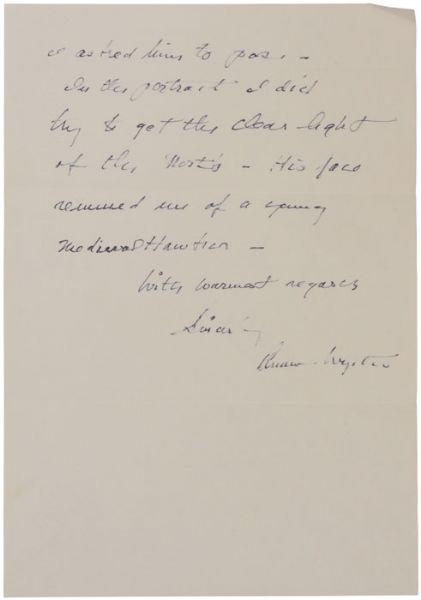 I asked him to pose -
In the portrait I did
try to get the clear light
of the North - His face
remined me of a young
Medieval
With warmest regards